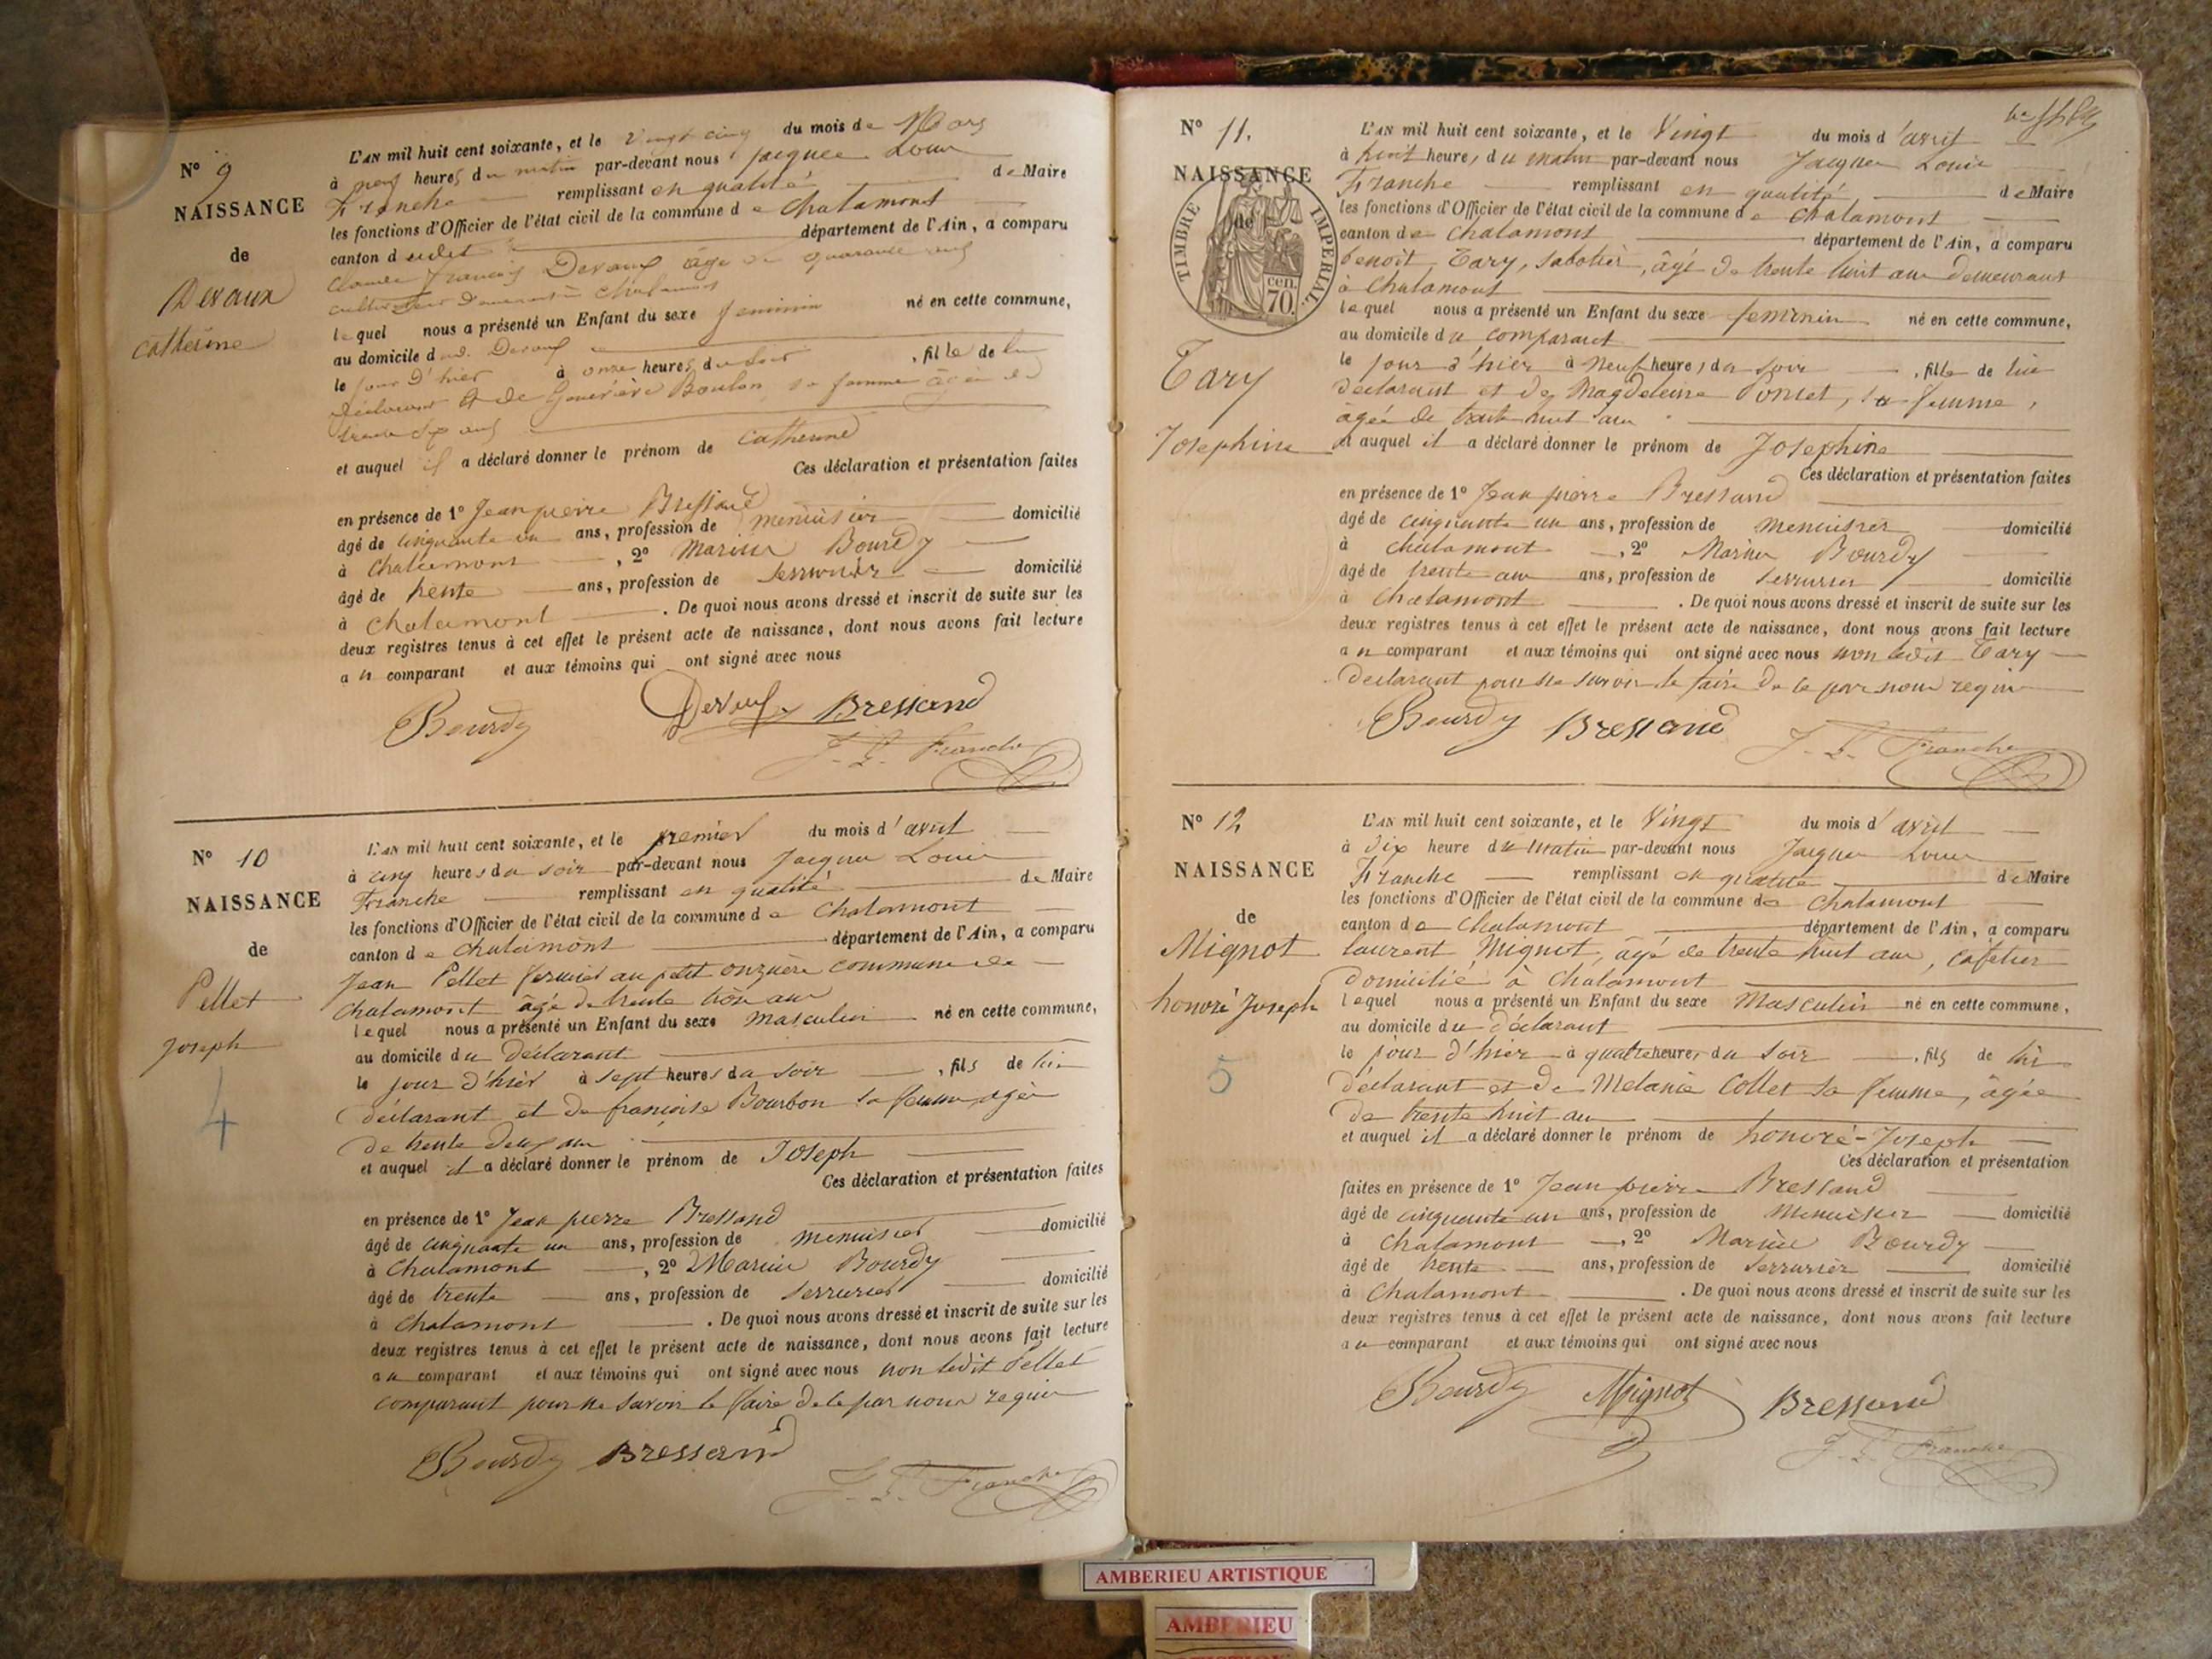 N° 9
NAISSANCE
de
Devaux
catherine
L'AN mil huit cent soixante, et le vingt cinq du mois de Mars
à neuf heures du matin par-devant nous jacques Louis
Franche remplissant en qualité de Maire
les fonctions d'Officier de l'état civil de la commune de chalamont
canton dudit département de l'Ain, a comparu
claude françois Devaux âgé de quarante
cultivateur demeurant à chalamont
lequel nous a présenté un Enfant du sexe feminin né en cette commune,
au domicile dud. Devaux
le jour d'hier à onze heures du soir, fille de lui
déclarant et de Geneviève Boulon sa femme âgée de
trente ans
et auquel il a déclaré donner le prénom de catherine
Ces déclaration et présentation faites
en présence de 1° Jean pierre Bressand
âgé de cinquante un ans, profession de menuisier domicilié
à chalamont, 2° Marius Bourdy
âgé de trente ans, profession de serrurier domicilié
à chalamont. De quoi nous avons dressé et inscrit de suite sur les
deux registres tenus à cet effet le présent acte de naissance, dont nous avons fait lecture
au comparant et aux témoins qui ont signé avec nous
Bourdy Devaux Bressand
J. L. Franche
N° 10
NAISSANCE
de
Pellet
joseph
4
L'AN mil huit cent soixante, et le premier du mois d'avril
à cinq heures du soir par-devant nous jacques Louis
Franche remplissant en qualité de Maire
les fonctions d'Officier de l'état civil de la commune de chalamont
canton de chalamont département de l'Ain, a comparu
jean Pellet fermier au petit onzuère commune de
chalamont âgé de trente trois ans
lequel nous a présenté un Enfant du sexe masculin né en cette commune,
au domicile du déclarant
le jour d'hier à sept heures du soir, fils de lui
déclarant et de françoise Bourbon sa femme agée
de trente deux ans
et auquel il a déclaré donner le prénom de Joseph
Ces déclaration et présentation faites
en présence de 1° Jean pierre Bressand
âgé de cinquante un ans, profession de menuisier domicilié
à chalamont, 2° Marius Bourdy
âgé de trente ans, profession de serrurier domicilié
à chalamont. De quoi nous avons dressé et inscrit de suite sur les
deux registres tenus à cet effet le présent acte de naissance, dont nous avons fait lecture
au comparant et aux témoins qui ont signé avec nous non ledit Pellet
comparant pour ne savoir le faire de ce par nous requis
Bourdy Bressand
J. L. Franche
N° 11.
NAISSANCE
de
TIMBRE IMPERIAL
70. cen.
Tary
Josephine
L'AN mil huit cent soixante, et le Vingt du mois d'avril
à huit heures du matin par-devant nous Jacques Louis
Franche remplissant en qualité de Maire
les fonctions d'Officier de l'état civil de la commune de chalamont
canton de chalamont département de l'Ain, a comparu
benoît Tary, sabotier, âgé de trente huit ans demeurant
à chalamont
lequel nous a présenté un Enfant du sexe feminin né en cette commune,
au domicile du comparant
le jour d'hier à neuf heures du soir, fille de lui
déclarant et de Magdeleine Poncet, sa femme,
âgée de trente huit ans
et auquel il a déclaré donner le prénom de Josephine
Ces déclaration et présentation faites
en présence de 1° Jean pierre Bressand
âgé de cinquante un ans, profession de menuisier domicilié
à chalamont, 2° Marius Bourdy
âgé de trente ans, profession de serrurier domicilié
à Chalamont. De quoi nous avons dressé et inscrit de suite sur les
deux registres tenus à cet effet le présent acte de naissance, dont nous avons fait lecture
au comparant et aux témoins qui ont signé avec nous non ledit Tary
déclarant pour ne savoir le faire de ce par nous requis
Bourdy Bressand
J. L. Franche
N° 12
NAISSANCE
de
Mignot
honoré Joseph
5
L'AN mil huit cent soixante, et le Vingt du mois d'avril
à dix heure du matin par-devant nous Jacques Louis
Franche remplissant en qualité de Maire
les fonctions d'Officier de l'état civil de la commune de Chalamont
canton de Chalamont département de l'Ain, a comparu
laurent Mignot, âgé de trente huit ans, cafetier
domicilié à Chalamont
lequel nous a présenté un Enfant du sexe Masculin né en cette commune,
au domicile du déclarant
le jour d'hier à quatre heures du soir, fils de lui
déclarant et de Melanie Collet sa femme, âgée
de trente huit ans
et auquel il a déclaré donner le prénom de honoré-Joseph
Ces déclaration et présentation
faites en présence de 1° Jean pierre Bressand
âgé de cinquante un ans, profession de Menuisier domicilié
à Chalamont, 2° Marius Bourdy
âgé de trente ans, profession de serrurier domicilié
à Chalamont. De quoi nous avons dressé et inscrit de suite sur les
deux registres tenus à cet effet le présent acte de naissance, dont nous avons fait lecture
au comparant et aux témoins qui ont signé avec nous
Bourdy Mignot Bressand
J. L. Franche
AMBERIEU ARTISTIQUE
AMBERIEU